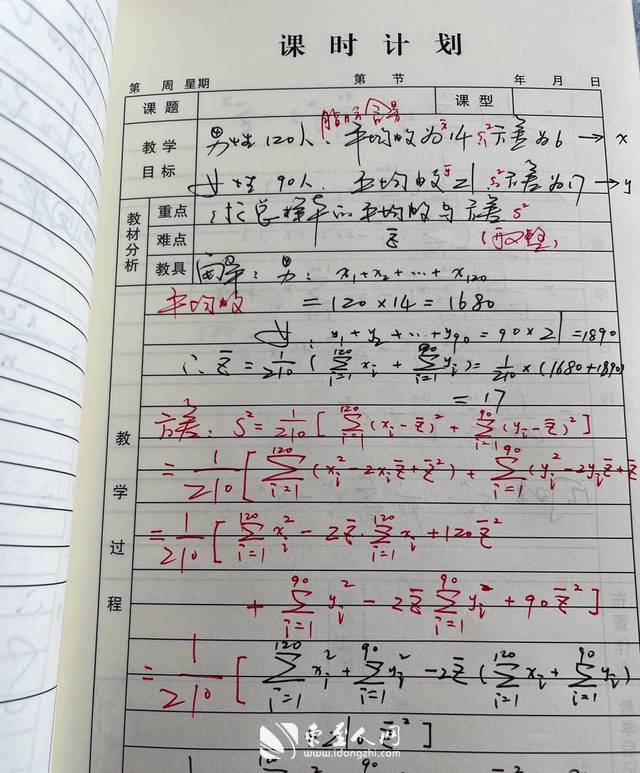 课时计划
第 周 星期 第 节 年 月 日
课题 课型
脂肪含量
教学目标
男性120人. 平均数为x̄ 14 s₁²方差为6 → x
女性 90人. 平均数ȳ 21 s₂²方差为17 → y
教材分析
重点 求总样本的平均数与方差 s²
难点 z̄
教具 解: 男: x₁+x₂+…+x₁₂₀
平均数 = 120×14 = 1680
女: y₁+y₂+…+y₉₀ = 90×21 = 1890
∴ z̄ = 1/210 (∑_{i=1}^{120} xᵢ + ∑_{i=1}^{90} yᵢ) = 1/210 × (1680+1890)
= 17
教学过程
方差: s² = 1/210 [ ∑_{i=1}^{120} (xᵢ-z̄)² + ∑_{i=1}^{90} (yᵢ-z̄)² ]
= 1/210 [ ∑_{i=1}^{120} (xᵢ²-2xᵢz̄+z̄²) + ∑_{i=1}^{90} (yᵢ²-2yᵢz̄+z̄
= 1/210 [ ∑_{i=1}^{120} xᵢ² - 2z̄·∑_{i=1}^{120} xᵢ + 120z̄²
+ ∑_{i=1}^{90} yᵢ² - 2z̄ ∑_{i=1}^{90} yᵢ + 90z̄² ]
= 1/210 [ ∑_{i=1}^{120} xᵢ² + ∑_{i=1}^{90} yᵢ² - 2z̄ (∑_{i=1}^{120} xᵢ + ∑_{i=1}^{90} yᵢ)
210 z̄² ]
东至人网
www.idongzhi.com
120 90